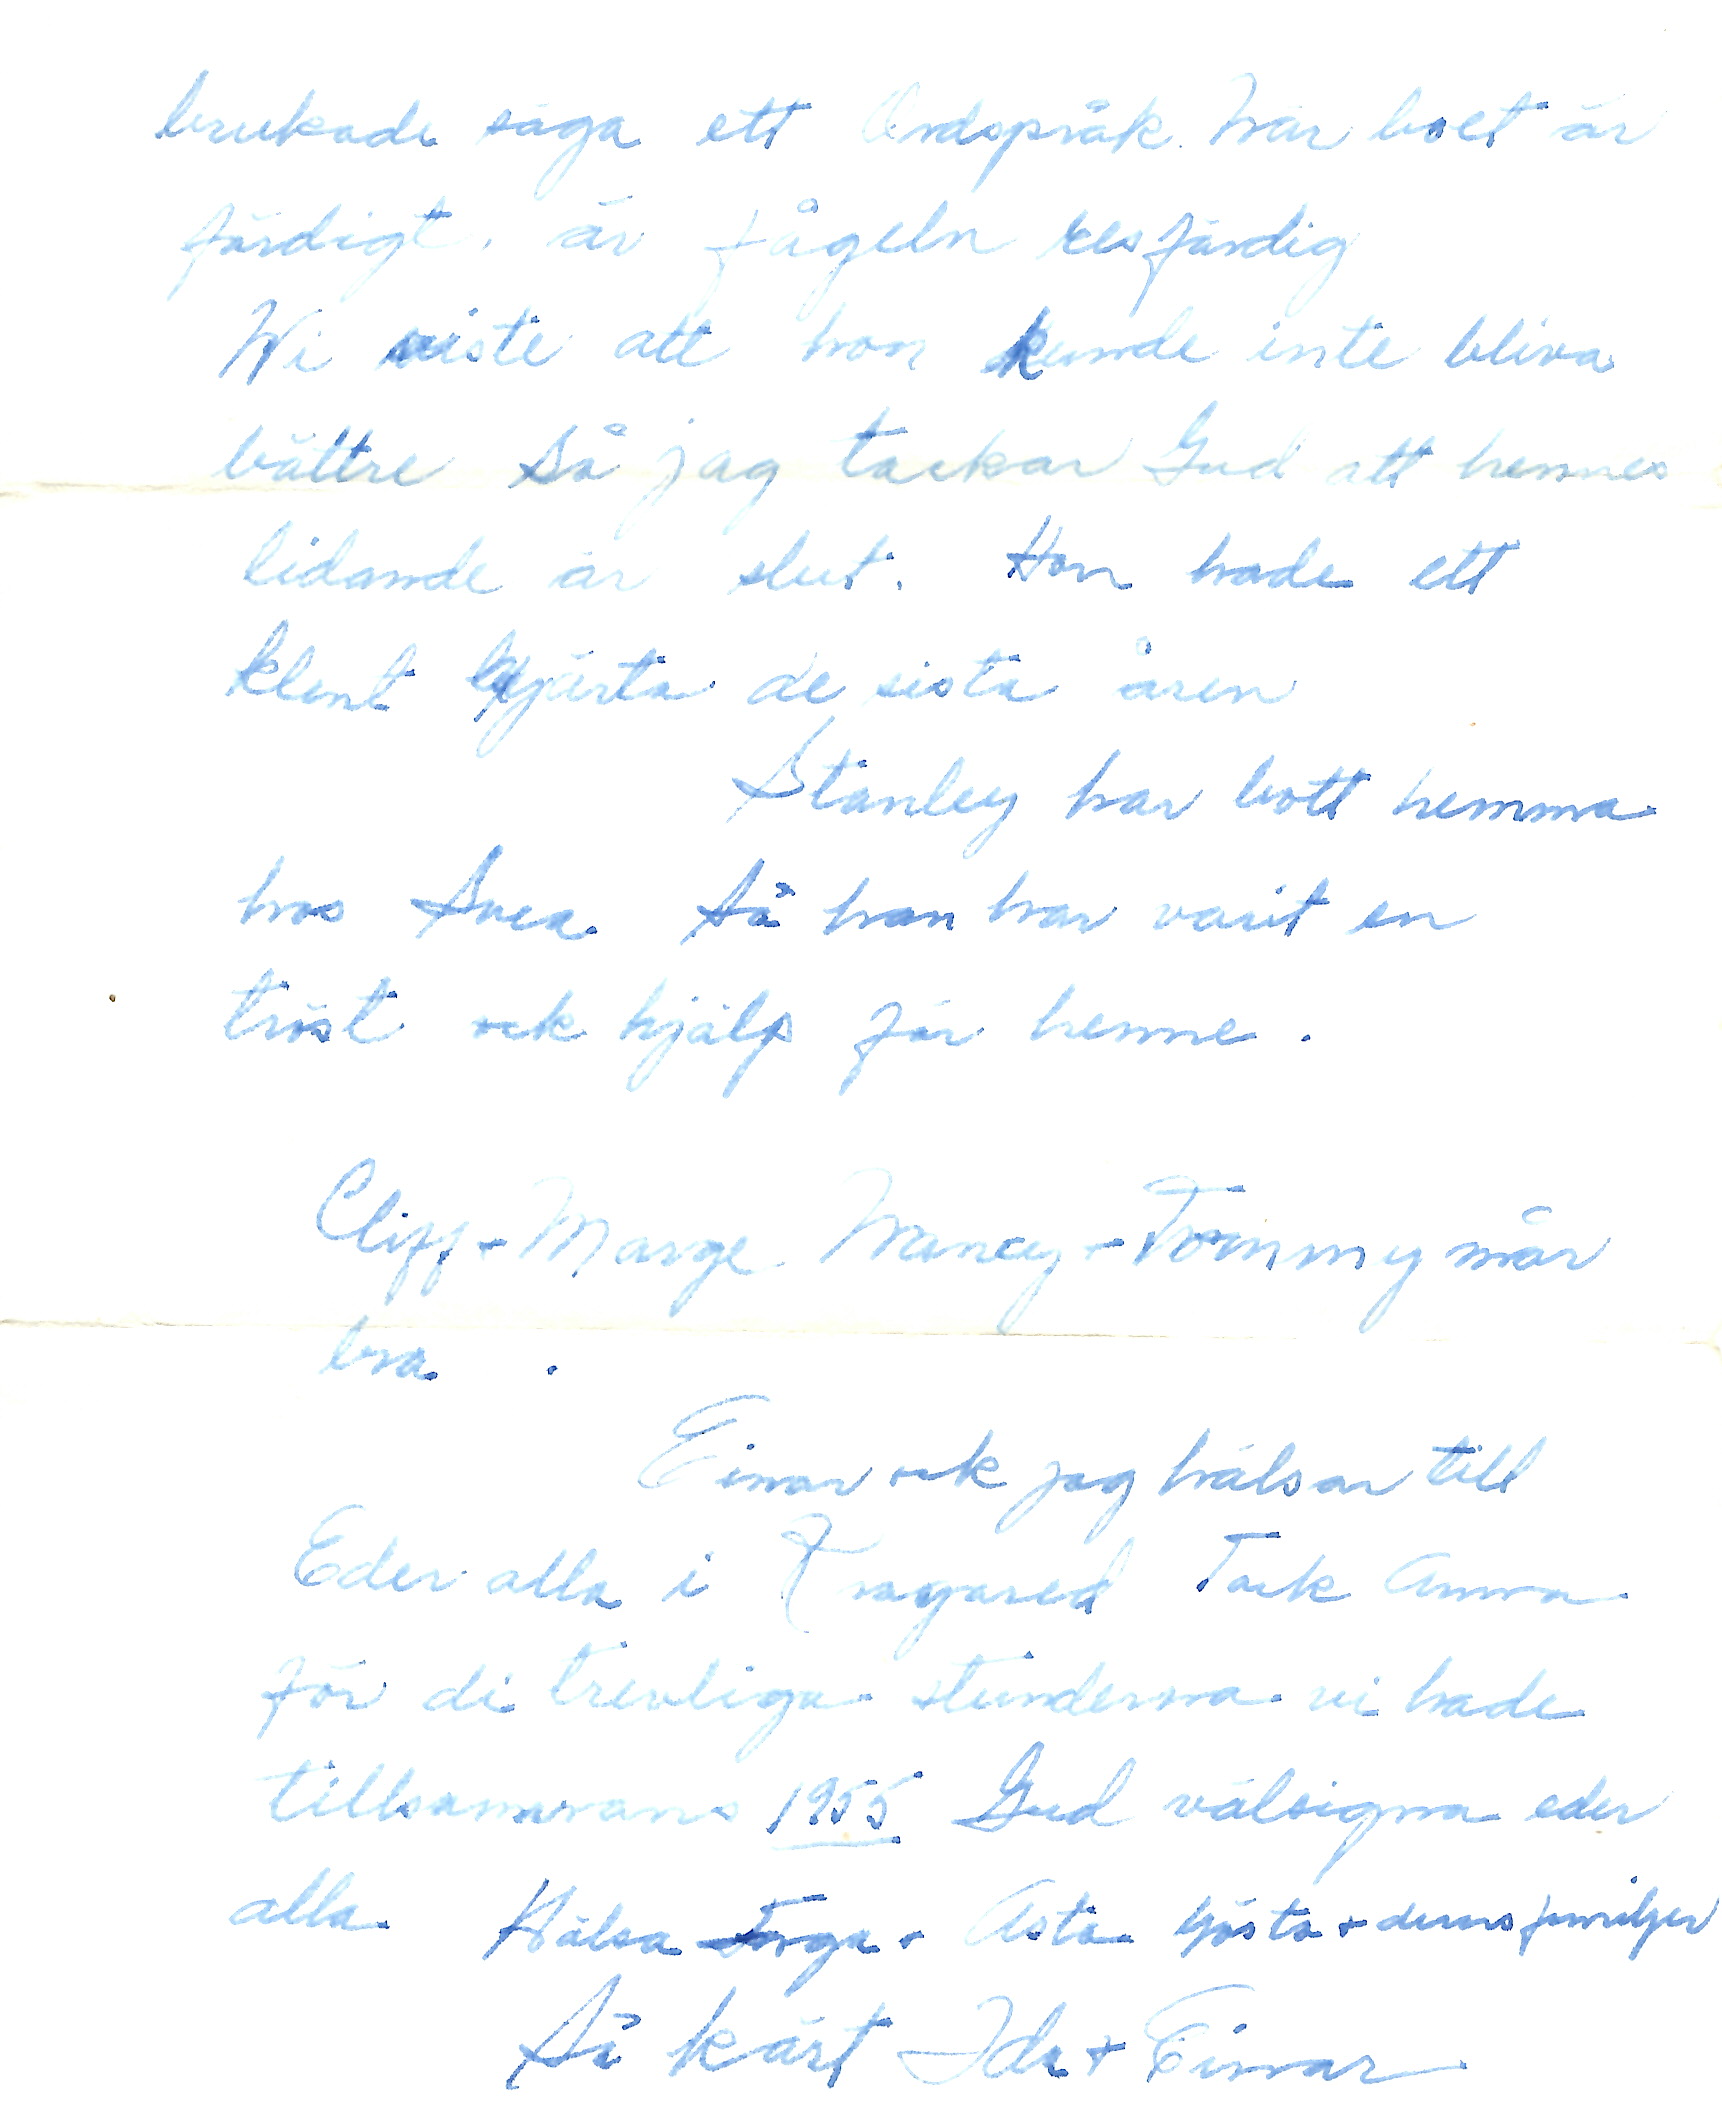 brukade säga ett Ordspråk. När boet är
färdigt. är fågeln resfärdig
Wi viste att hon kunde inte bliva
bättre Så jag tackar Gud att hennes
lidande är slut. Hon hade ett
klent hjärta de sista åren
Stanley har bott hemma
hos Svea. Så han har varit en
tröst ock hjälp för henne.
Cliff + Marge Nancy + Tommy mår
bra.
Einar ock jag hälsar till
Eder alla i Tack Anna
för di trevliga stunderna vi hade
tillsammans 1955 Gud välsigna eder
alla Hälsa Asta Gösta + deras familjer
Så kärt Ida + Einar